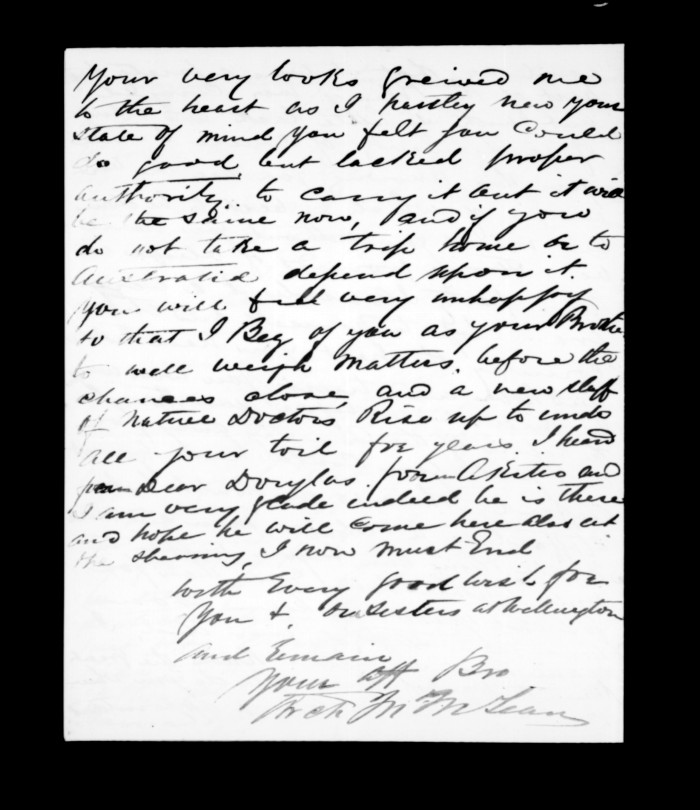 Your very looks greived me
to the heart as I partley new your
state of mind you felt you could
do good but lacked proper
authority to carry it but it will
be the same now, and if you
do not take a trip home or to
Australia depend upon it
you will feel very unhappy
so that I Beg of you as your Brother
to well weigh matters. before the
chances close and a new staff
of Native Doctors Rise up to undo
all your toil for years. I heard
from Dear Douglas from and
I am very glade indeed he is there
and hope he will come here also at
the shearing, I now must End
with Every good wish for
you &, our sisters at Wellington
and Remain
Your aff Bro
Arch McLean